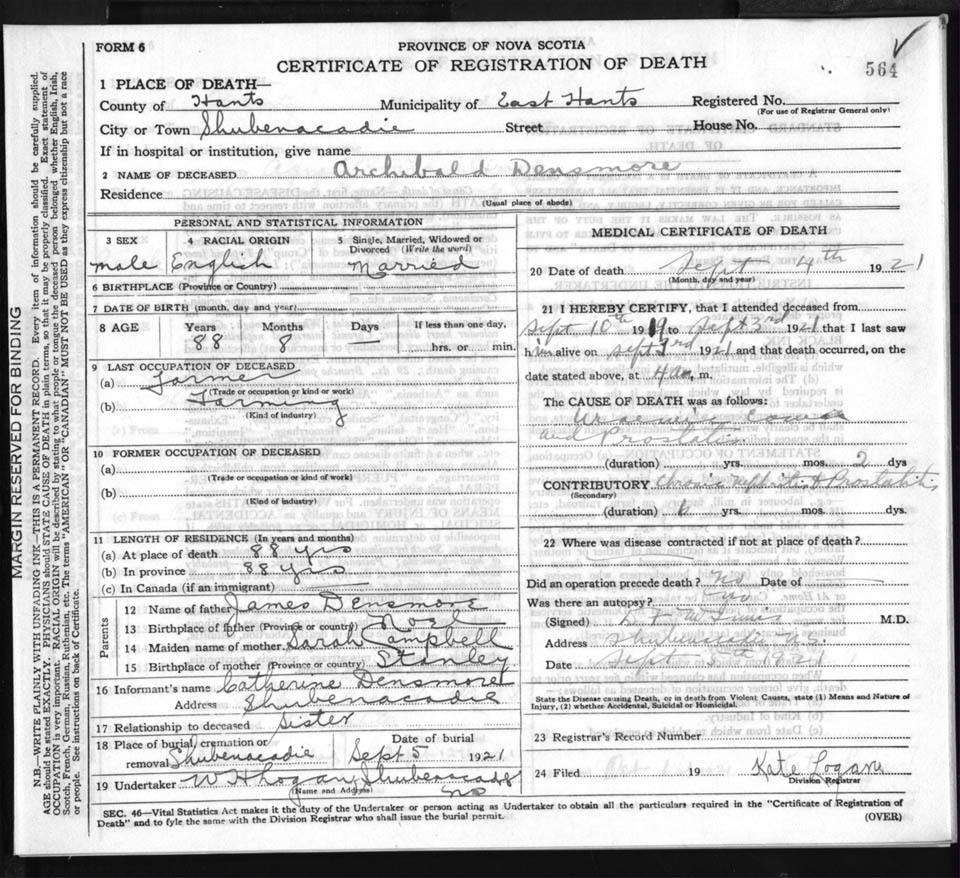 FORM 6
PROVINCE OF NOVA SCOTIA
CERTIFICATE OF REGISTRATION OF DEATH
564
1 PLACE OF DEATH—
County of Hants Municipality of East Hants Registered No.
(For use of Registrar General only)
City or Town Shubenacadie Street House No.
If in hospital or institution, give name
2 NAME OF DECEASED Archibald Densmore
Residence
(Usual place of abode)
PERSONAL AND STATISTICAL INFORMATION
3 SEX 4 RACIAL ORIGIN 5 Single, Married, Widowed or Divorced (Write the word)
male English Married
6 BIRTHPLACE (Province or Country)
7 DATE OF BIRTH (month, day and year)
8 AGE Years Months Days If less than one day,
88 8 — hrs. or min.
9 LAST OCCUPATION OF DECEASED
(a) Farmer
(Trade or occupation or kind or work)
(b) Farming
(Kind of industry)
10 FORMER OCCUPATION OF DECEASED
(a)
(Trade or occupation or kind of work)
(b)
(Kind of industry)
11 LENGTH OF RESIDENCE (In years and months)
(a) At place of death 88 yrs
(b) In province 88 yrs
(c) In Canada (if an immigrant)
Parents
12 Name of father James Densmore
13 Birthplace of father (Province or country) Noel
14 Maiden name of mother Sarah Campbell
15 Birthplace of mother (Province or country) Stanley
16 Informant's name Catherine Densmore
Address Shubenacadie
17 Relationship to deceased Sister
18 Place of burial, cremation or removal Shubenacadie Date of burial Sept 5 1921
19 Undertaker W H Logan, Shubenacadie
(Name and Address) NS
MEDICAL CERTIFICATE OF DEATH
20 Date of death Sept 4th 1921
(Month, day and year)
21 I HEREBY CERTIFY, that I attended deceased from
Sept 10th 1919 to Sept 3rd 1921 that I last saw
him alive on Sept 3rd 1921 and that death occurred, on the
date stated above, at 4 am, m.
The CAUSE OF DEATH was as follows:
Uraemic Coma
and Prostatitis
(duration) yrs. mos. 2 dys
CONTRIBUTORY Chronic nephritis & Prostatitis
(Secondary)
(duration) yrs. mos. dys.
22 Where was disease contracted if not at place of death?
Did an operation precede death? No Date of
Was there an autopsy? no
(Signed) M.D.
Address Shubenacadie N.S.
Date Sept 5th 1921
State the Disease causing Death, or in death from Violent Causes, state (1) Means and Nature of
Injury, (2) whether Accidental, Suicidal or Homicidal.
23 Registrar's Record Number
24 Filed 19 Kate Logan
Division Registrar
SEC. 46—Vital Statistics Act makes it the duty of the Undertaker or person acting as Undertaker to obtain all the particulars required in the "Certificate of Registration of
Death" and to fyle the same with the Division Registrar who shall issue the burial permit.
(OVER)
MARGIN RESERVED FOR BINDING
N.B.—WRITE PLAINLY WITH UNFADING INK—THIS IS A PERMANENT RECORD. Every item of information should be carefully supplied.
AGE should be stated EXACTLY. PHYSICIANS should STATE CAUSE OF DEATH in plain terms, so that it may be properly classified. Exact statement of
OCCUPATION is very important. RACIAL ORIGIN will be described by stating to what people or tongue the deceased person belonged whether English, Irish,
Scotch, French, German, Russian, Ruthenian, etc. The terms "AMERICAN" OR "CANADIAN" MUST NOT BE USED as they express citizenship but not a race
or people. See instructions on back of Certificate.